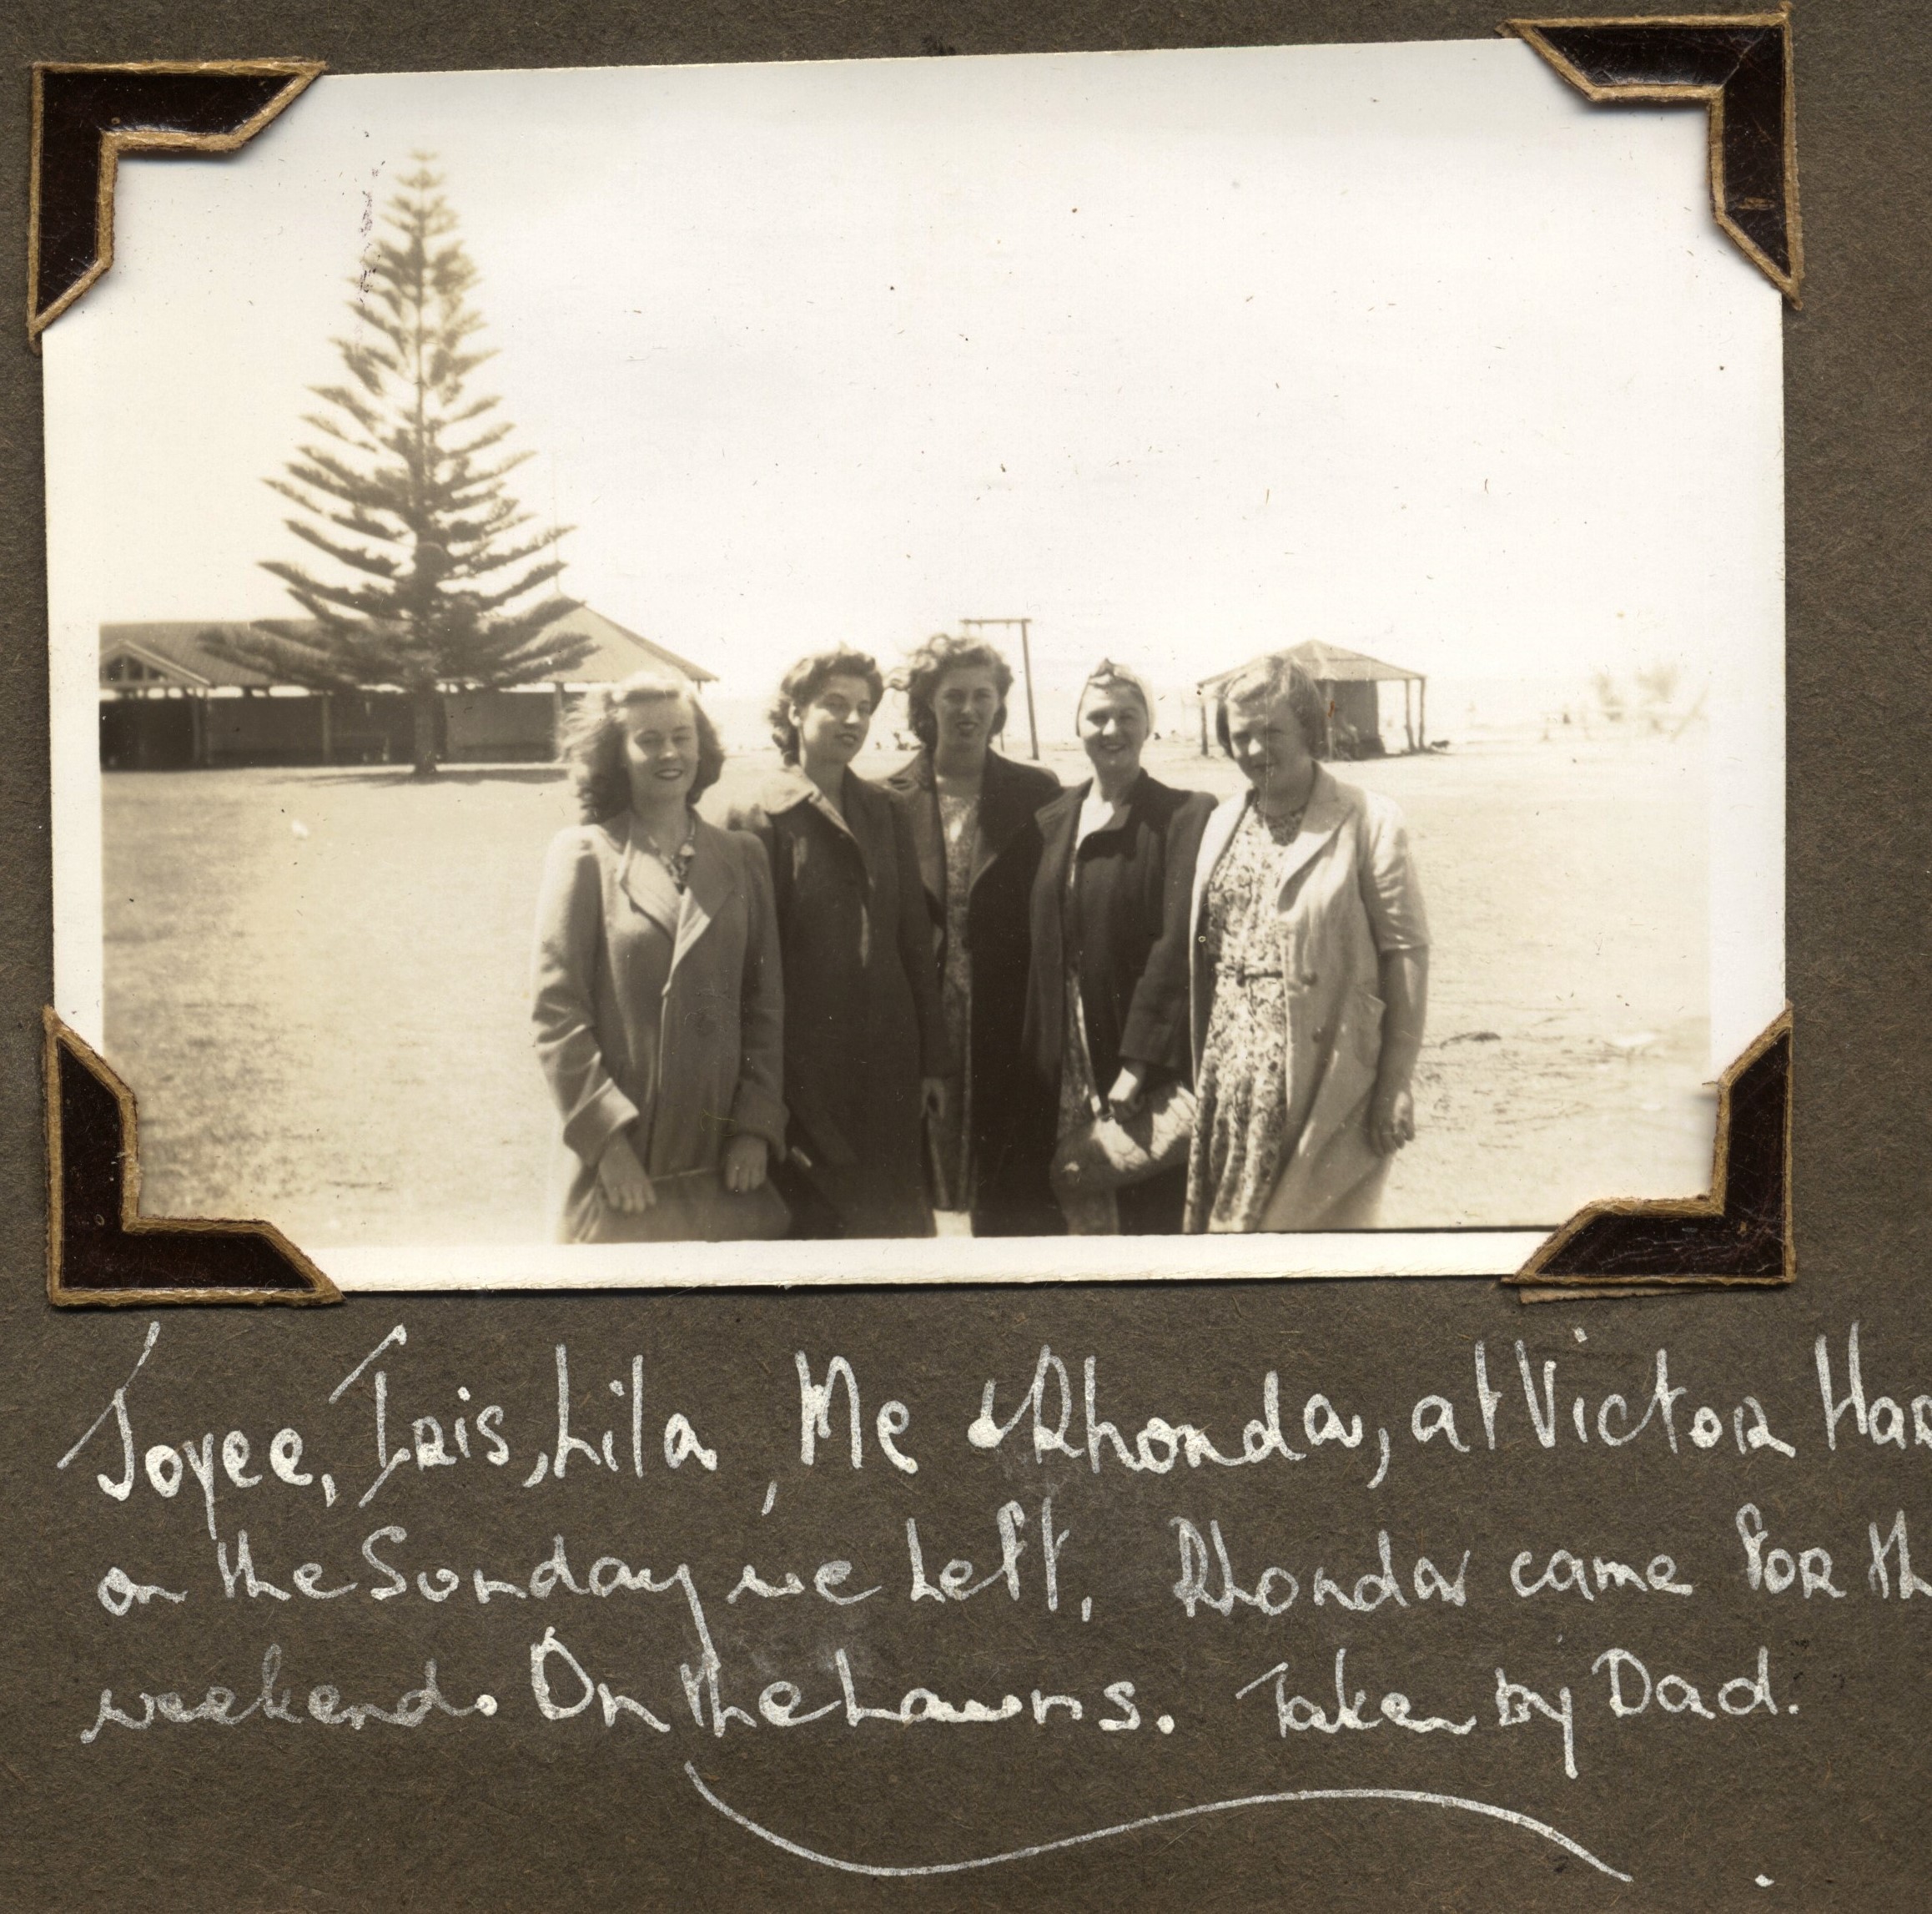 Joyce, Iris, Lila, Me & Rhonda, at Victor Har
on the Sunday we left, Rhonda came for th
weekend. On the Lawns. Taken by Dad.